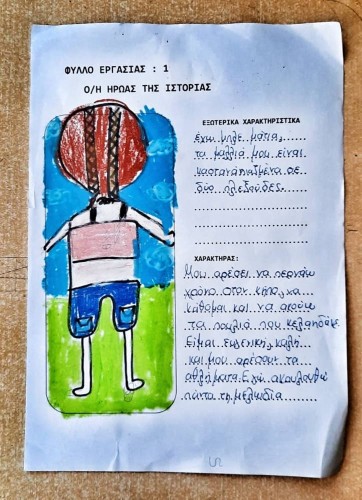 ΦΥΛΛΟ ΕΡΓΑΣΙΑΣ : 1
Ο/Η ΗΡΩΑΣ ΤΗΣ ΙΣΤΟΡΙΑΣ
ΕΞΩΤΕΡΙΚΑ ΧΑΡΑΚΤΗΡΙΣΤΙΚΑ
Εχω μπλε μάτια,
τα μαλλιά μου είναι
καστανά πιασμένα σε
δύο πλεξούδες.
ΧΑΡΑΚΤΗΡΑΣ:
Μου αρέσει να περνάω
χρόνο στον κήπο, να
κάθομαι και να ακούω
τα πουλιά που κελαηδάνε.
Είμαι ευγενική, καλή
και μου αρέσουν τα
αθλήματα. Εγώ ακολουθώ
πάντα τη μελωδία